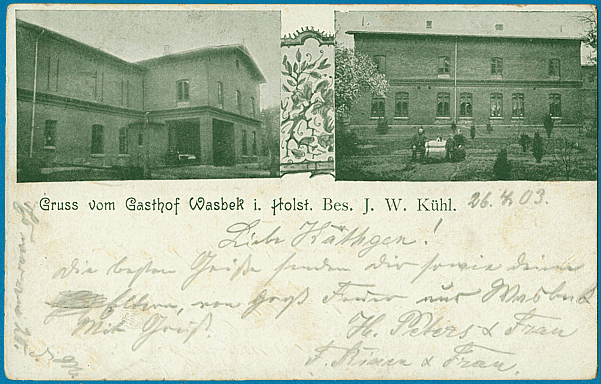 Gruss vom Gasthof Wasbek i. Holst. Bes. J. W. Kühl. 26.4.03.
Liebe Käthgen!
Die besten Grüße senden dir sowie deine
Eltern, von Groß aus Wasbek
Mit Gruß. H. Peters & Frau
F. & Frau.